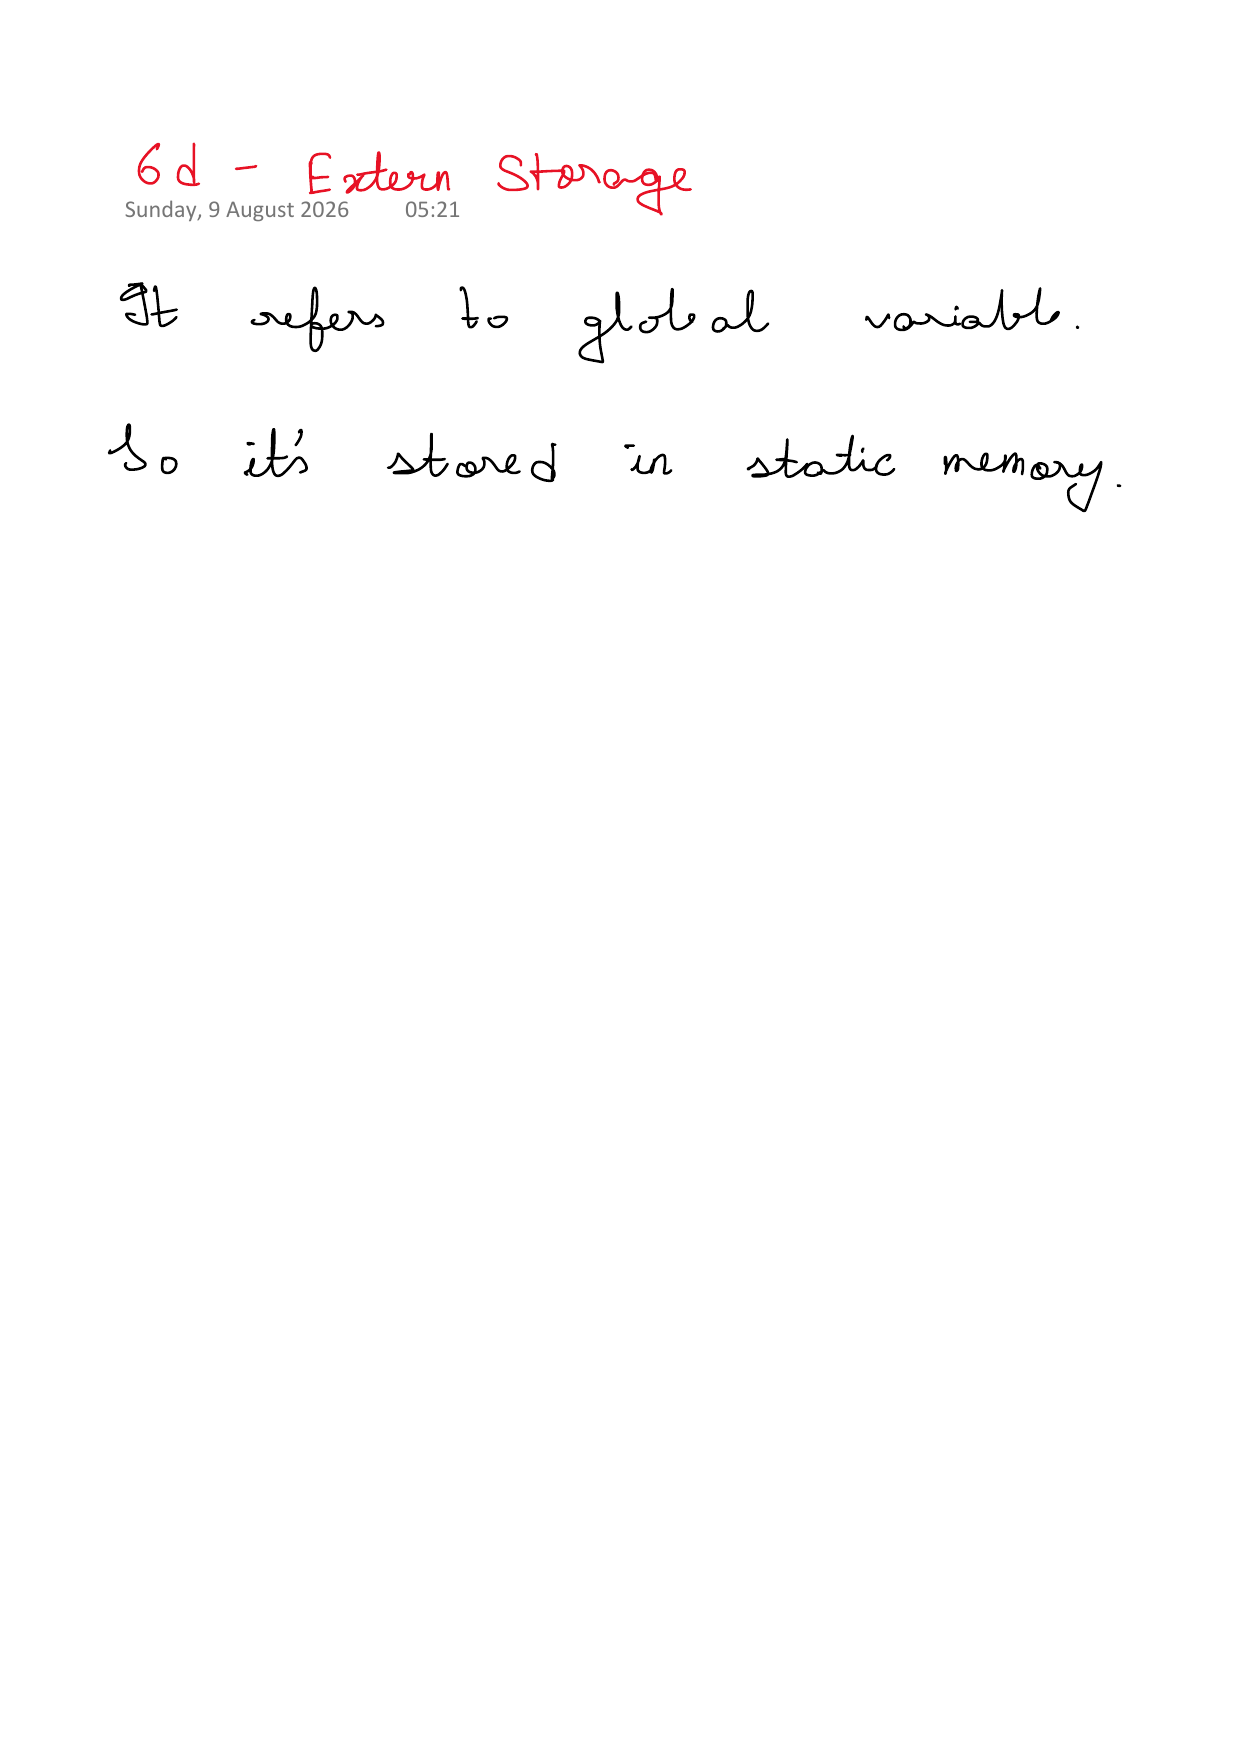 6d - Extern Storage
Sunday, 9 August 2026 05:21
It refers to global variable.
So it's stored in static memory.